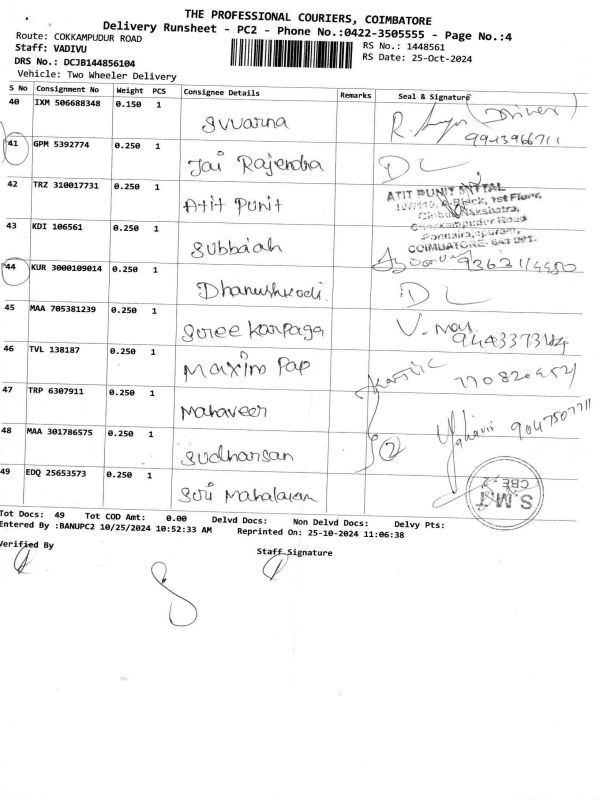 THE PROFESSIONAL COURIERS, COIMBATORE
Delivery Runsheet - PC2 - Phone No.:0422-3505555 - Page No.:4
Route: COKKAMPUDUR ROAD
RS No.: 1448561
Staff: VADIVU
RS Date: 25-Oct-2024
DRS No.: DCJB144856104
Vehicle: Two Wheeler Delivery
S No Consignment No Weight PCS Consignee Details Remarks Seal & Signature
40 IXM 506688348 0.150 1 Suvarna R. (Driver)
9943966711
41 GPM 5392774 0.250 1 Jai Rajendra DL
42 TRZ 310017731 0.250 1 Atit Punit ATIT PUNIT MITTAL
A-Block, 1st Floor,
Nakshatra,
Road
COIMBATORE-
43 KDI 106561 0.250 1 Subbaiah
44 KUR 3000109014 0.250 1 Dhanushkodi DL
45 MAA 705381239 0.250 1 Sree Karpaga
46 TVL 138187 0.250 1 Maxim Pap
47 TRP 6307911 0.250 1 Mahaveer
48 MAA 301786575 0.250 1 Sudharsan 2
49 EDQ 25653573 0.250 1 Sri Mahalaxm S.M.T
CBE-2
Tot Docs: 49 Tot COD Amt: 0.00 Delvd Docs: Non Delvd Docs: Delvy Pts:
Entered By :BANUPC2 10/25/2024 10:52:33 AM Reprinted On: 25-10-2024 11:06:38
Verified By
Staff Signature